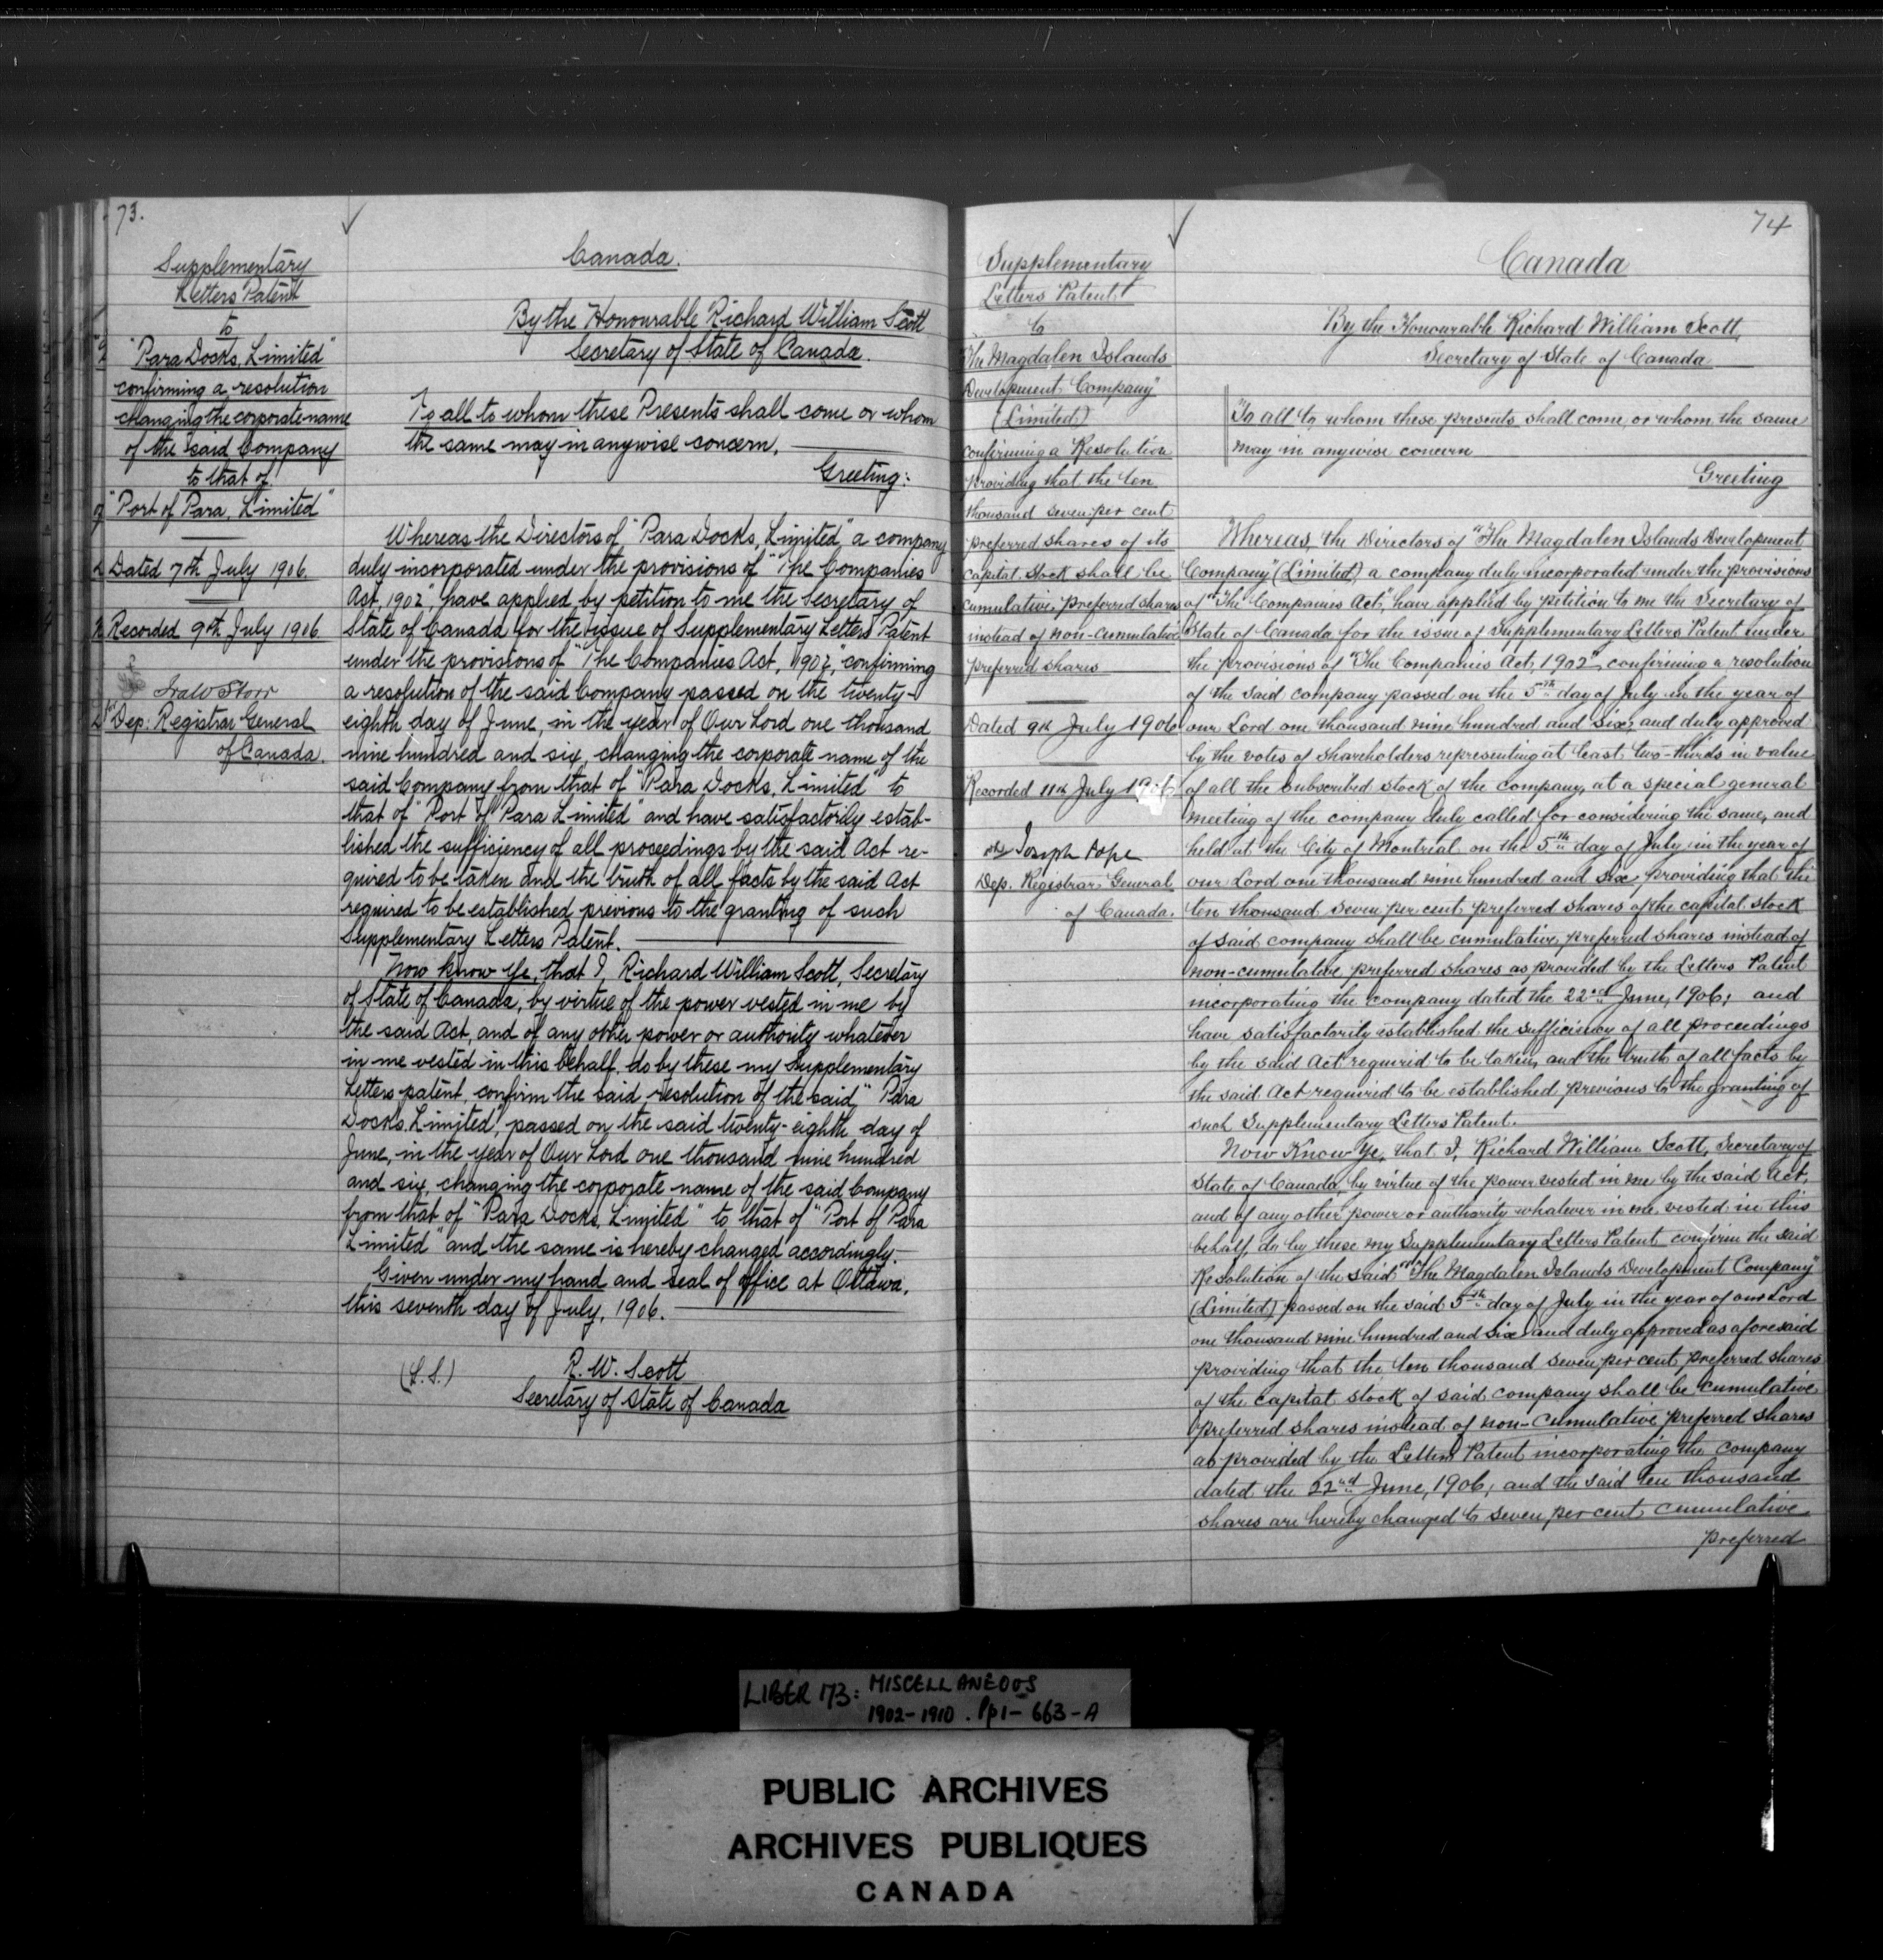 73.
Supplementary
Letters Patent
to
"Para Docks, Limited"
confirming a resolution
changing the corporate name
of the said Company
to that of
"Port of Para, Limited"
Dated 7th July 1906.
Recorded 9th July 1906
Dep: Registrar General
of Canada.
Canada.
By the Honourable Richard William Scott
Secretary of State of Canada.
To all to whom these Presents shall come or whom
the same may in anywise concern,
Greeting:
Whereas the Directors of "Para Docks, Limited," a company
duly incorporated under the provisions of "The Companies
Act, 1902", have applied by petition to me the Secretary of
State of Canada for the issue of Supplementary Letters Patent
under the provisions of "The Companies Act, 1902," confirming
a resolution of the said Company passed on the twenty-
eighth day of June, in the year of Our Lord one thousand
nine hundred and six, changing the corporate name of the
said Company from that of "Para Docks, Limited" to
that of "Port of Para Limited" and have satisfactorily estab-
lished the sufficiency of all proceedings by the said Act re-
quired to be taken and the truth of all facts by the said Act
required to be established previous to the granting of such
Supplementary Letters Patent.
Now know Ye, that I, Richard William Scott, Secretary
of State of Canada, by virtue of the power vested in me by
the said Act, and of any other power or authority whatever
in me vested in this behalf, do by these my Supplementary
Letters patent, confirm the said resolution of the said "Para
Docks, Limited", passed on the said twenty-eighth day of
June, in the year of Our Lord one thousand nine hundred
and six, changing the corporate name of the said Company
from that of "Para Docks, Limited" to that of "Port of Para
Limited" and the same is hereby changed accordingly.
Given under my hand and seal of office at Ottawa,
this seventh day of July, 1906.
(L.S.)
R. W. Scott
Secretary of State of Canada
74
Supplementary
Letters Patent
to
"The Magdalen Islands
Development Company"
(Limited)
confirming a Resolution
providing that the ten
thousand seven per cent
preferred shares of its
capital stock shall be
cumulative preferred shares
instead of non-cumulative
preferred shares
Dated 9th July 1906
Recorded 11th July 1906
Joseph Pope
Dep. Registrar General
of Canada.
Canada
By the Honourable Richard William Scott,
Secretary of State of Canada
To all to whom these presents shall come, or whom the same
may in anywise concern
Greeting
Whereas, the Directors of "The Magdalen Islands Development
Company" (Limited) a company duly incorporated under the provisions
of "The Companies Act", have applied by petition to me the Secretary of
State of Canada for the issue of Supplementary Letters Patent under
the provisions of "The Companies Act, 1902", confirming a resolution
of the said company passed on the 5th day of July in the year of
our Lord one thousand nine hundred and six, and duly approved
by the votes of shareholders representing at least two-thirds in value
of all the subscribed stock of the company, at a special general
meeting of the company duly called for considering the same, and
held at the City of Montreal on the 5th day of July in the year of
our Lord one thousand nine hundred and six, providing that the
ten thousand seven per cent preferred shares of the capital stock
of said company shall be cumulative preferred shares instead of
non-cumulative preferred shares as provided by the Letters Patent
incorporating the company dated the 22nd June, 1906; and
have satisfactorily established the sufficiency of all proceedings
by the said Act required to be taken, and the truth of all facts by
the said Act required to be established previous to the granting of
such Supplementary Letters Patent.
Now Know Ye, that I, Richard William Scott, Secretary of
State of Canada, by virtue of the power vested in me by the said Act,
and of any other power or authority whatever in me vested in this
behalf, do by these my Supplementary Letters Patent confirm the said
Resolution of the said "The Magdalen Islands Development Company"
(Limited) passed on the said 5th day of July in the year of our Lord
one thousand nine hundred and six and duly approved as aforesaid
providing that the ten thousand seven per cent preferred shares
of the capital stock of said company shall be cumulative
preferred shares instead of non-cumulative preferred shares
as provided by the Letters Patent incorporating the company
dated the 22nd June, 1906; and the said ten thousand
shares are hereby changed to seven per cent cumulative
preferred
LIBER 173: MISCELLANEOUS
1902-1910. Pp 1-663-A
PUBLIC ARCHIVES
ARCHIVES PUBLIQUES
CANADA